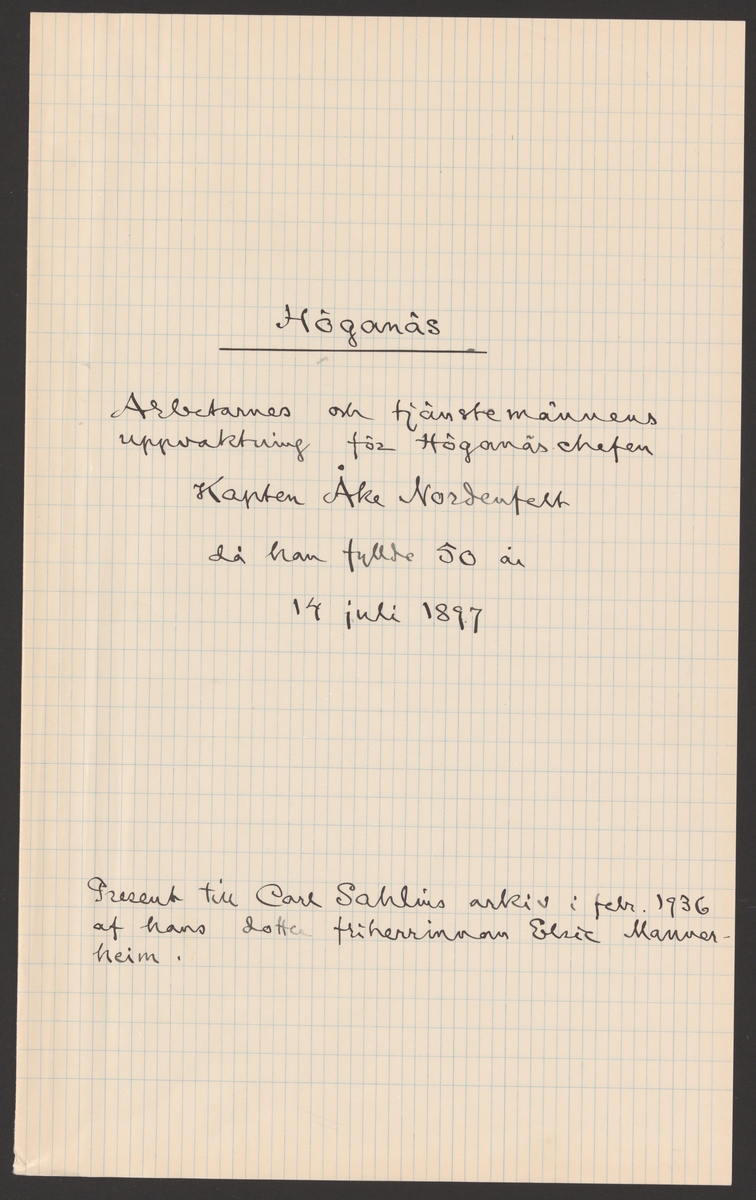 Höganäs
Arbetarnes och tjänstemännens
uppvaktning för Höganäschefen
Kapten Åke Nordenfelt
då han fyllde 50 år
14 juli 1897
Present till Carl Sahlins arkiv i febr. 1936
af hans dotter friherrinnan Elsie Manner-
heim.